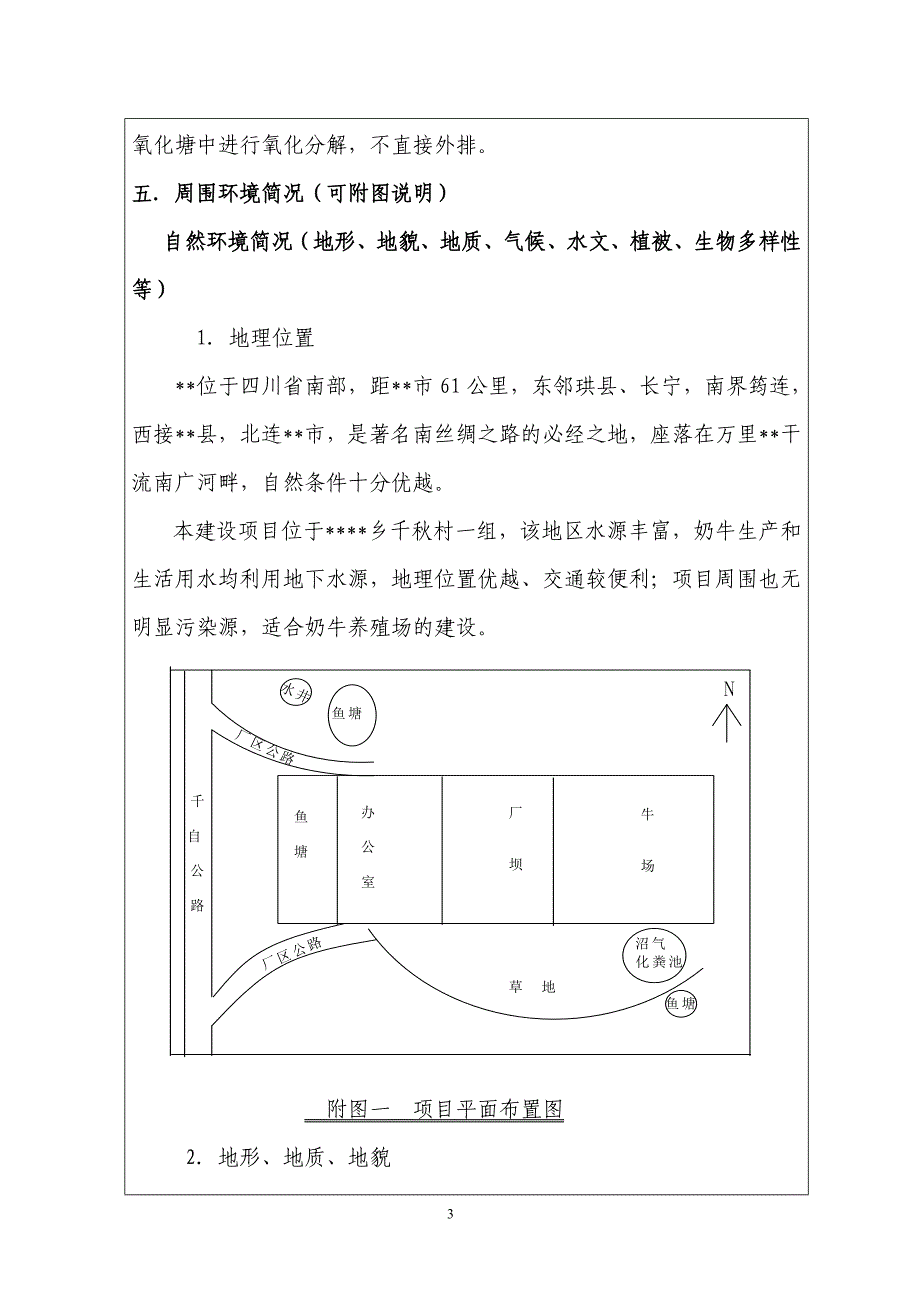 氧化塘中进行氧化分解，不直接外排。
五．周围环境简况（可附图说明）
自然环境简况（地形、地貌、地质、气候、水文、植被、生物多样性
等）
1．地理位置
**位于四川省南部，距**市 61 公里，东邻珙县、长宁，南界筠连，
西接**县，北连**市，是著名南丝绸之路的必经之地，座落在万里**干
流南广河畔，自然条件十分优越。
本建设项目位于****乡千秋村一组，该地区水源丰富，奶牛生产和
生活用水均利用地下水源，地理位置优越、交通较便利；项目周围也无
明显污染源，适合奶牛养殖场的建设。
水井
鱼塘
N
厂区公路
千自公路
鱼塘
办公室
厂坝
牛场
厂区公路
沼气
化粪池
草地
鱼塘
附图一 项目平面布置图
2．地形、地质、地貌
3